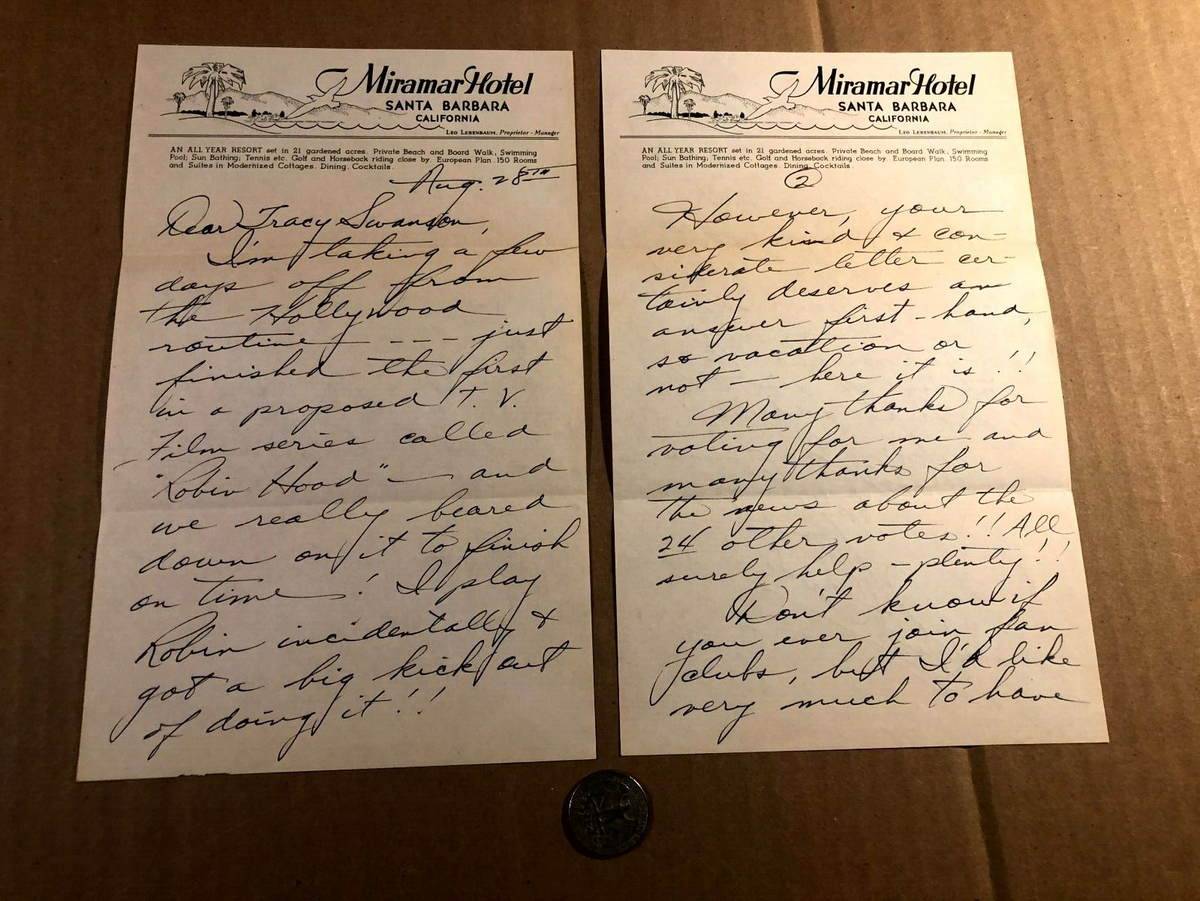 Miramar Hotel
SANTA BARBARA
CALIFORNIA
LEO LEBENBAUM, Proprietor - Manager
AN ALL YEAR RESORT set in 21 gardened acres. Private Beach and Board Walk, Swimming
Pool; Sun Bathing; Tennis etc. Golf and Horseback riding close by. European Plan. 150 Rooms
and Suites in Modernized Cottages. Dining. Cocktails.
Aug. 28TH
Dear Tracy Swanson,
I'm taking a few
days off from
the Hollywood
routine --- just
finished the first
in a proposed T.V.
Film series called
"Robin Hood" — and
we really beared
down on it to finish
on time! I play
Robin incidentally &
got a big kick out
of doing it!!
Miramar Hotel
SANTA BARBARA
CALIFORNIA
LEO LEBENBAUM, Proprietor - Manager
AN ALL YEAR RESORT set in 21 gardened acres. Private Beach and Board Walk, Swimming
Pool; Sun Bathing; Tennis etc. Golf and Horseback riding close by. European Plan. 150 Rooms
and Suites in Modernized Cottages. Dining. Cocktails.
2
However, your
very kind & con-
siderate letter cer-
tainly deserves an
answer first-hand,
so vacation or
not — here it is!!
Many thanks for
voting for me and
many thanks for
the news about the
24 other votes!! All
surely help - plenty!!
Don't know if
you ever join fan
clubs, but I'd like
very much to have